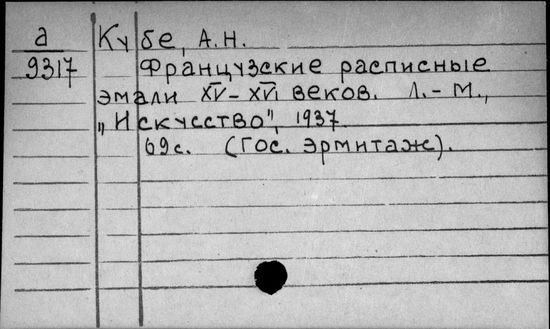 а Кубе, А.Н.
9317 Французские расписные
эмали XV–XVI веков. Л.–М.,
„Искусство", 1937
69с. (Гос. Эрмитаж).